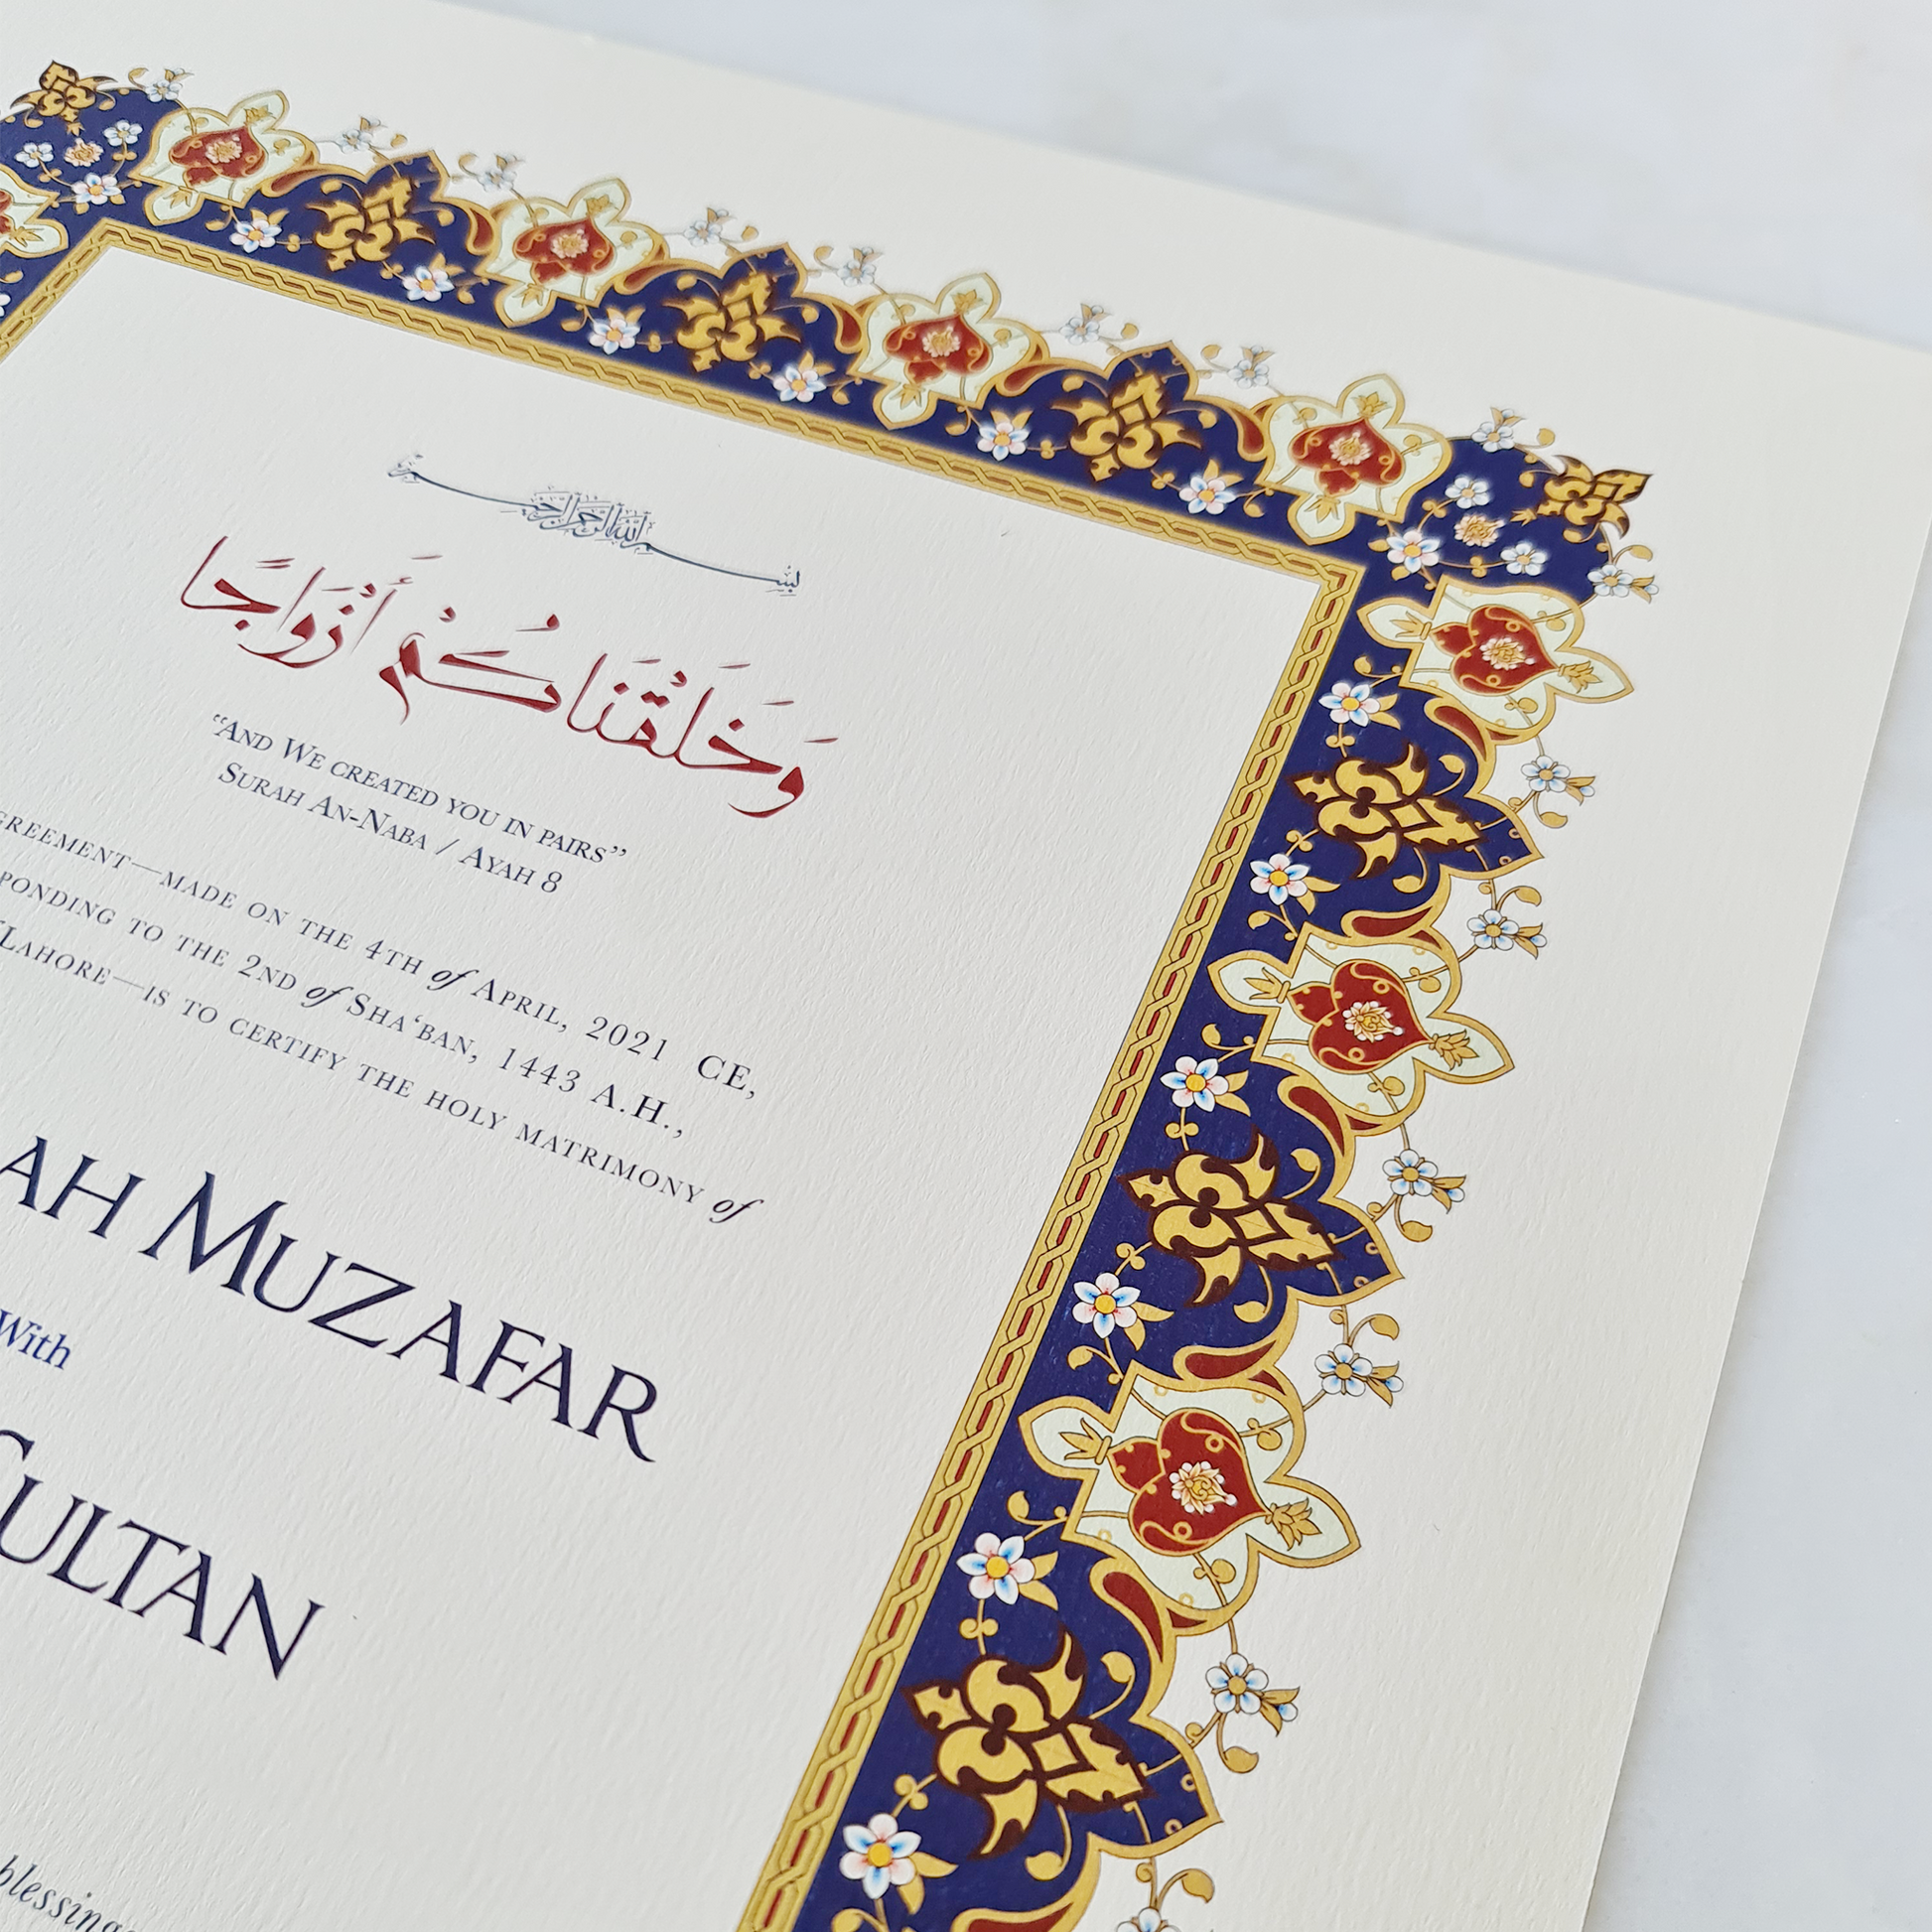 بِسْمِ اللَّهِ الرَّحْمَٰنِ الرَّحِيمِ
وَخَلَقْنَاكُمْ أَزْوَاجًا
“And We created you in pairs”
Surah An-Naba / Ayah 8
greement—made on the 4th of April, 2021 CE,
ponding to the 2nd of Sha‘ban, 1443 A.H.,
Lahore—is to certify the holy matrimony of
ah Muzafar
With
Sultan
blessings